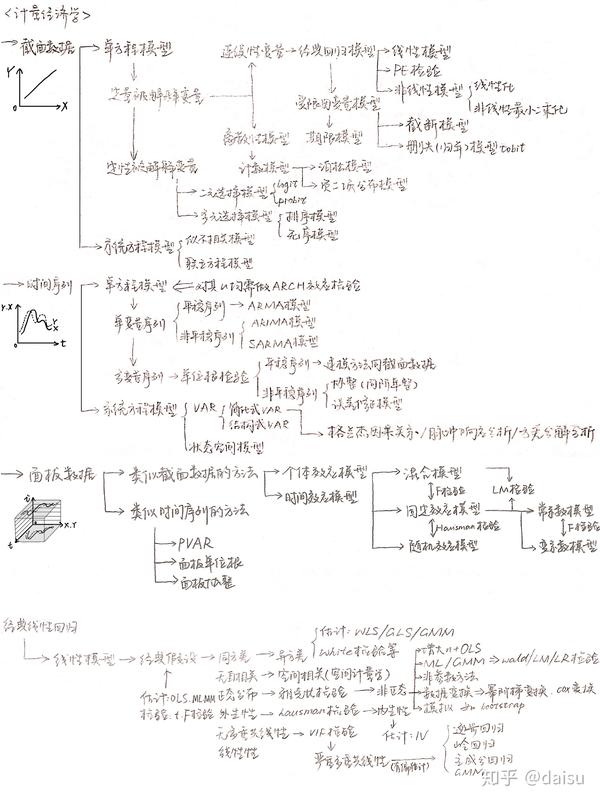 <计量经济学>
→ 截面数据 → 单方程模型 连续性变量 → 经典回归模型 → 线性模型
→ PE检验
→ 非线性模型 { 线性化
非线性最小二乘化
定量被解释变量 受限因变量模型
→ 截断模型
离散性模型 期限模型 → 删失(归并)模型 tobit
定性被解释变量 计数模型 → 泊松模型
→ 负二项分布模型
→ 二元选择模型 { logit
probit
→ 多元选择模型 { 排序模型
无序模型
系统方程模型 { 似不相关模型
联立方程模型
→ 时间序列 → 单方程模型 ⇐ 对其u均需做ARCH效应检验
单变量序列 { 平稳序列 → ARMA模型
非平稳序列 { ARIMA模型
SARMA模型
多变量序列 → 单位根检验 { 平稳序列 → 建模方法同截面数据
非平稳序列 { 协整(同阶单整)
误差修正模型
系统方程模型 { VAR { 简化式VAR
结构式VAR
→ 格兰杰因果关系/脉冲响应分析/方差分解分析
状态空间模型
→ 面板数据 → 类似截面数据的方法 → 个体效应模型 → 混合模型
→ 时间效应模型 F检验 LM检验
→ 类似时间序列的方法 → 固定效应模型 → 常系数模型
Hausman检验 F检验
→ PVAR → 随机效应模型 → 变系数模型
→ 面板单位根
→ 面板协整
经典线性回归
→ 线性模型 → 经典假设 → 同方差 → 异方差 { 估计: WLS/GLS/GMM
White检验等
无自相关 → 空间相关(空间计量) → 增大n+OLS
→ ML/GMM → wald/LM/LR检验
→ 非参数方法
估计: OLS.ML.MM 正态分布 → 非正态 → 数据变换 → 幂阶梯变换. cox变换
→ 模拟 bootstrap
检验: t.F检验 外生性 → hausman检验 → 内生性
估计: IV
无多重共线性 → VIF检验
线性性 严重多重共线性 (有偏估计) { 逐步回归
岭回归
主成分回归
GMM
知乎 @daisu